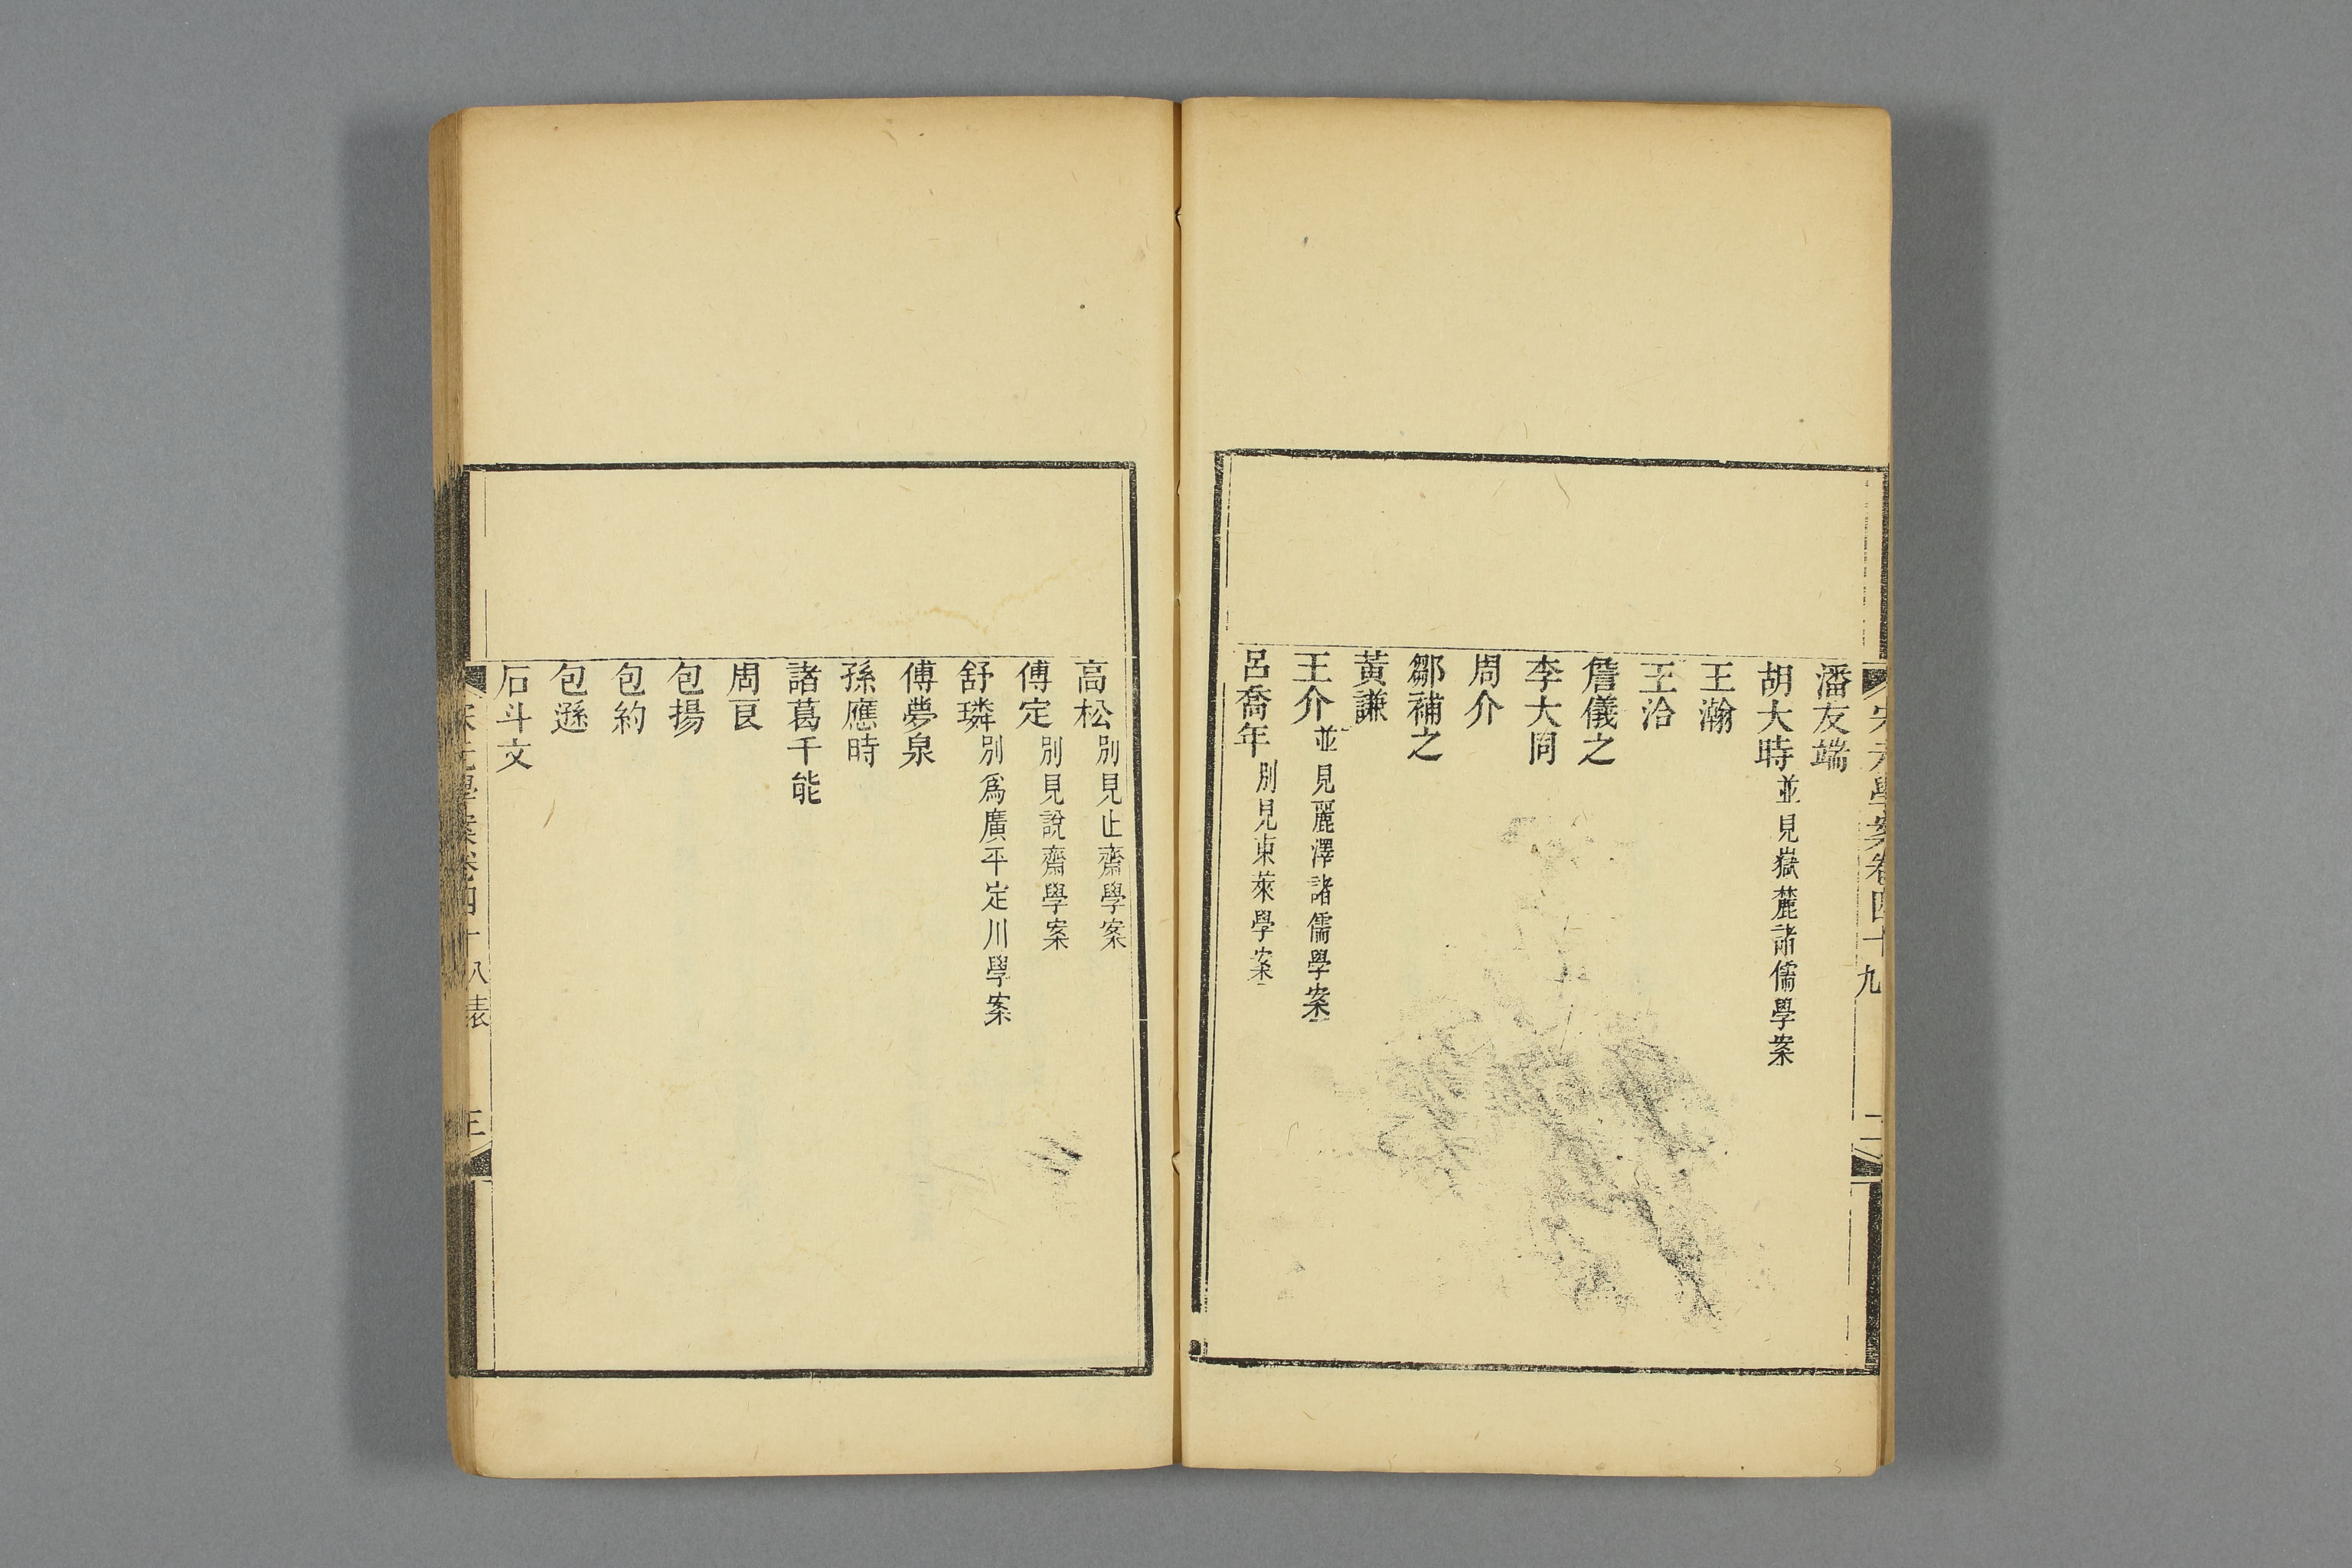 宋元學案卷四十九
二
潘友端
胡大時並見嶽麓諸儒學案
王瀚
王洽
詹儀之
李大同
周介
鄒補之
黃謙
王介並見麗澤諸儒學案
呂喬年別見東萊學案
高松別見止齋學案
傅定別見說齋學案
舒璘別爲廣平定川學案
傅夢泉
孫應時
諸葛千能
周良
包揚
包約
包遜
石斗文
宋元學案卷四十八表
三